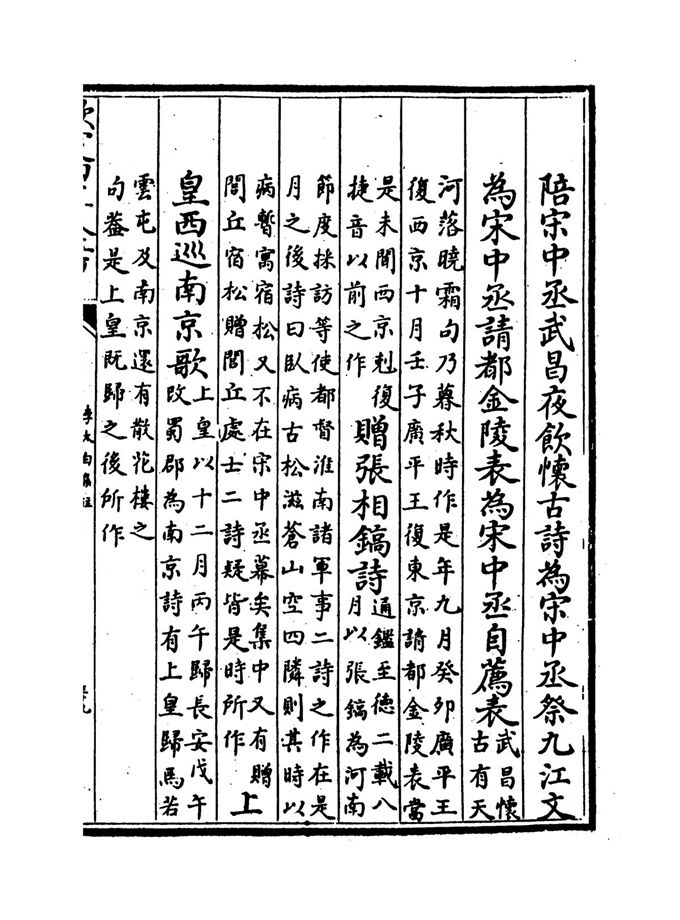 陪宋中丞武昌夜飲懷古詩為宋中丞祭九江文
為宋中丞請都金陵表為宋中丞自薦表武昌懷
古有天
河落曉霜句乃暮秋時作是年九月癸卯廣平王
復西京十月壬子廣平王復東京請都金陵表當
是未聞西京剋復
捷音以前之作
贈張相鎬詩通鑑至德二載八
月以張鎬為河南
節度採訪等使都督淮南諸軍事二詩之作在是
月之後詩曰臥病古松滋蒼山空四隣則其時以
病暫寓宿松又不在宋中丞幕矣集中又有贈
閭丘宿松贈閭丘處士二詩疑皆是時所作
上
皇西巡南京歌上皇以十二月丙午歸長安戊午
改蜀郡為南京詩有上皇歸馬若
雲屯及南京還有散花樓之
句葢是上皇既歸之後所作
李太白集注